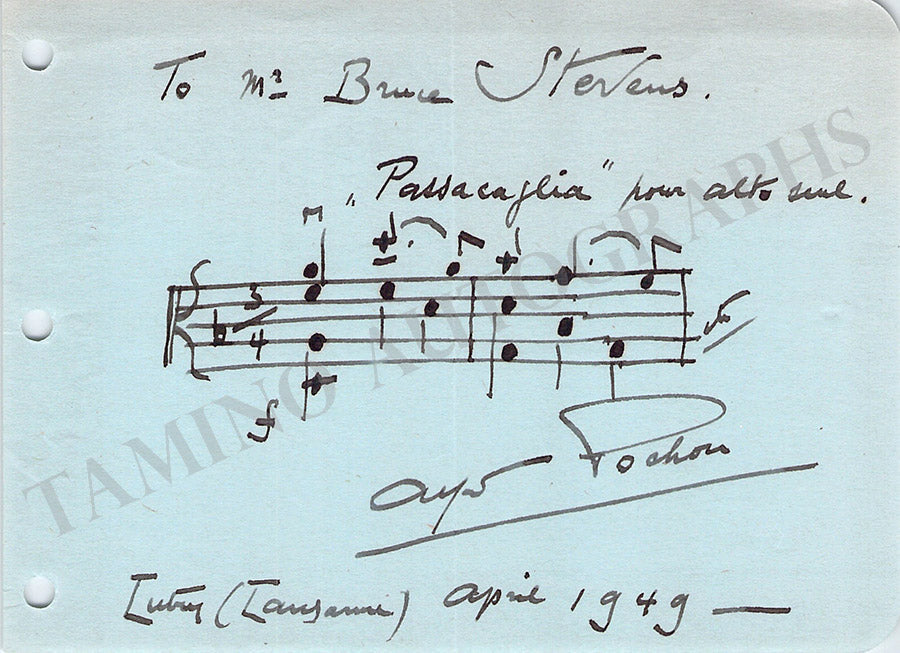 To Mr Bruce Stevens.
„Passacaglia" pour alto seul.
3
4
f
Alfred Pochon
Lutry (Lausanne) April 1949 —
TAMINO AUTOGRAPHS